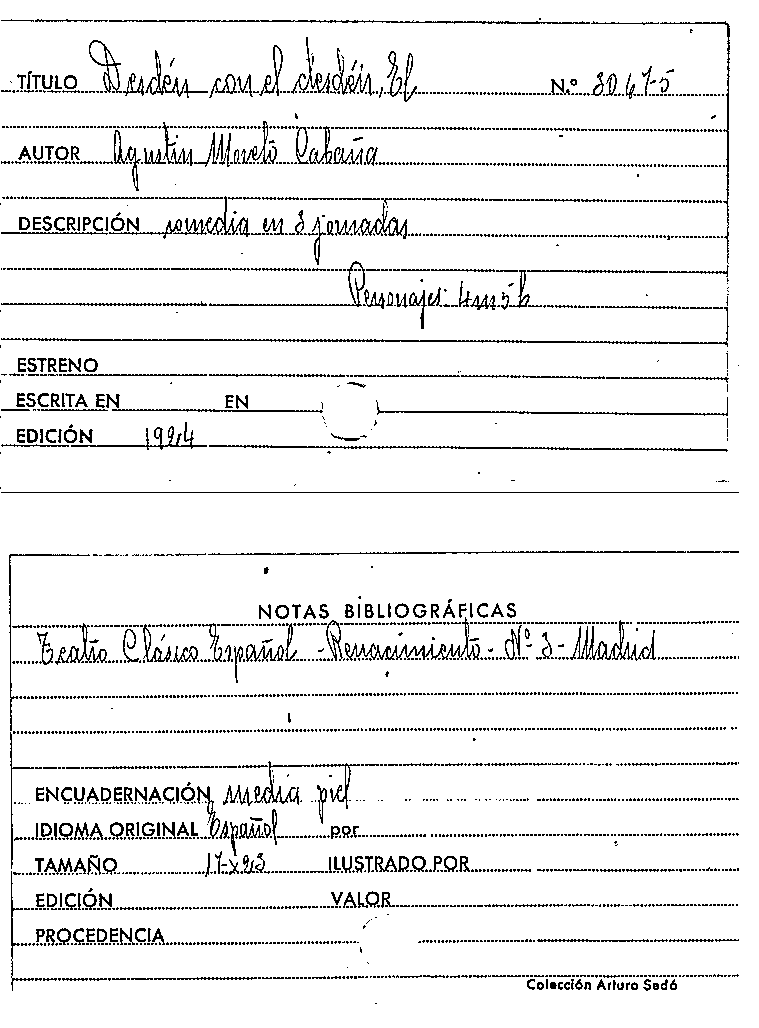 TÍTULO Desdén con el desdén, El N.º 30675
AUTOR Agustin Moreto Cabaña
DESCRIPCIÓN comedia en 3 jornadas
Personajes: 4m 5h
ESTRENO
ESCRITA EN EN
EDICIÓN 1924
NOTAS BIBLIOGRÁFICAS
Teatro Clásico Español - Renacimiento - Nº 3 - Madrid
ENCUADERNACIÓN media piel
IDIOMA ORIGINAL Español por
TAMAÑO 17x23 ILUSTRADO POR
EDICIÓN VALOR
PROCEDENCIA
Colección Arturo Sedó